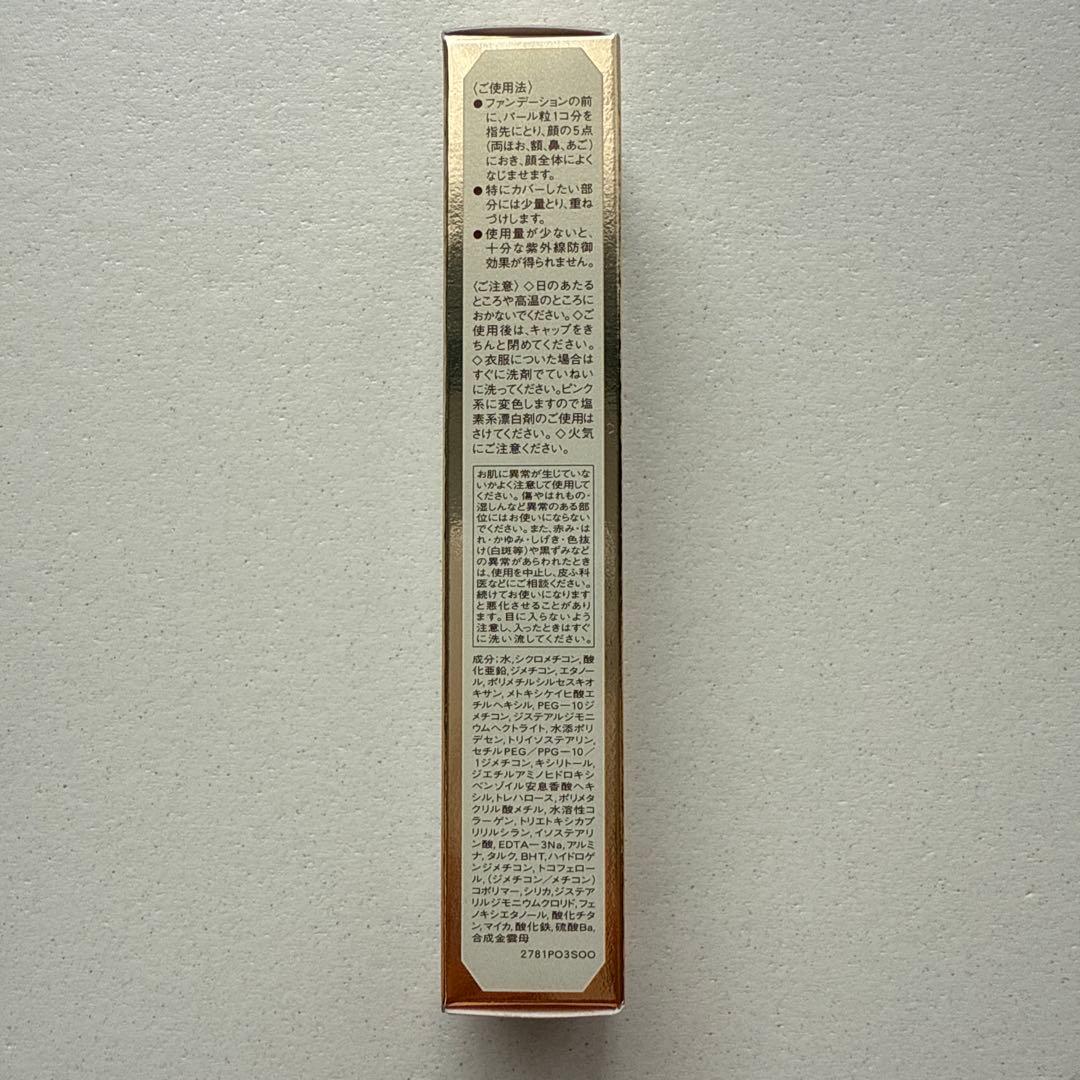 〈ご使用法〉
●ファンデーションの前
に、パール粒1コ分を
指先にとり、顔の5点
(両ほお、額、鼻、あご)
におき、顔全体によく
なじませます。
●特にカバーしたい部
分には少量とり、重ね
づけします。
●使用量が少ないと、
十分な紫外線防御
効果が得られません。
〈ご注意〉◇日のあたる
ところや高温のところに
おかないでください。◇ご
使用後は、キャップをき
ちんと閉めてください。
◇衣服についた場合は
すぐに洗剤でていねい
に洗ってください。ピンク
系に変色しますので塩
素系漂白剤のご使用は
さけてください。◇火気
にご注意ください。
お肌に異常が生じていな
いかよく注意して使用して
ください。傷やはれもの・
湿しんなど異常のある部
位にはお使いにならない
でください。また、赤み・は
れ・かゆみ・しげき・色抜
け(白斑等)や黒ずみなど
の異常があらわれたとき
は、使用を中止し、皮ふ科
医などにご相談ください。
続けてお使いになります
と悪化させることがあり
ます。目に入らないよう
注意し、入ったときはすぐ
に洗い流してください。
成分:水,シクロメチコン,酸
化亜鉛,ジメチコン,エタノー
ル,ポリメチルシルセスキオ
キサン,メトキシケイヒ酸エ
チルヘキシル,PEG-10ジ
メチコン,ジステアルジモニ
ウムヘクトライト,水添ポリ
デセン,トリイソステアリン,
セチルPEG/PPG-10/
1ジメチコン,キシリトール,
ジエチルアミノヒドロキシ
ベンゾイル安息香酸ヘキ
シル,トレハロース,ポリメタ
クリル酸メチル,水溶性コ
ラーゲン,トリエトキシカプ
リリルシラン,イソステアリ
ン酸,EDTA-3Na,アルミ
ナ,タルク,BHT,ハイドロゲ
ンジメチコン,トコフェロー
ル,(ジメチコン/メチコン)
コポリマー,シリカ,ジステア
リルジモニウムクロリド,フェ
ノキシエタノール,酸化チタ
ン,マイカ,酸化鉄,硫酸Ba,
合成金雲母
2781PO3SOO